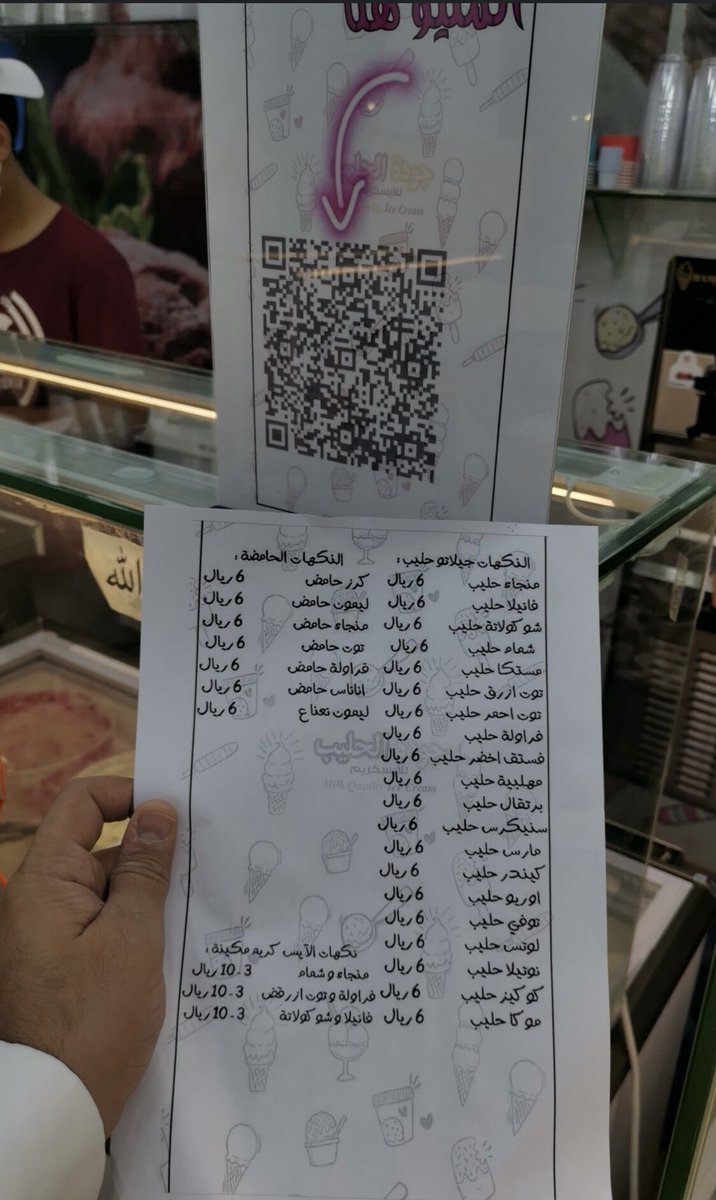 المنيو هنا
جودة الحليب
للآيسكريم
Milk Quality Ice Cream
الله
النكهات جيلاتو حليب :
منجاء حليب 6 ريال
فانيلا حليب 6 ريال
شوكولاتة حليب 6 ريال
شمام حليب 6 ريال
مستكا حليب 6 ريال
توت ازرق حليب 6 ريال
توت احمر حليب 6 ريال
فراولة حليب 6 ريال
فستق اخضر حليب 6 ريال
مهلبية حليب 6 ريال
برتقال حليب 6 ريال
سنيكرس حليب 6 ريال
مارس حليب 6 ريال
كيندر حليب 6 ريال
اوريو حليب 6 ريال
توفي حليب 6 ريال
لوتس حليب 6 ريال
نوتيلا حليب 6 ريال
كوكيز حليب 6 ريال
موكا حليب 6 ريال
النكهات الحامضة :
كرز حامض 6 ريال
ليمون حامض 6 ريال
منجاء حامض 6 ريال
توت حامض 6 ريال
فراولة حامض 6 ريال
اناناس حامض 6 ريال
ليمون نعناع 6 ريال
جودة الحليب
للآيسكريم
Milk Quality Ice Cream
نكهات الآيس كريم مكينة :
منجاء و شمام 3-10 ريال
فراولة و توت ازرقض 3-10 ريال
فانيلا و شوكولاتة 3-10 ريال